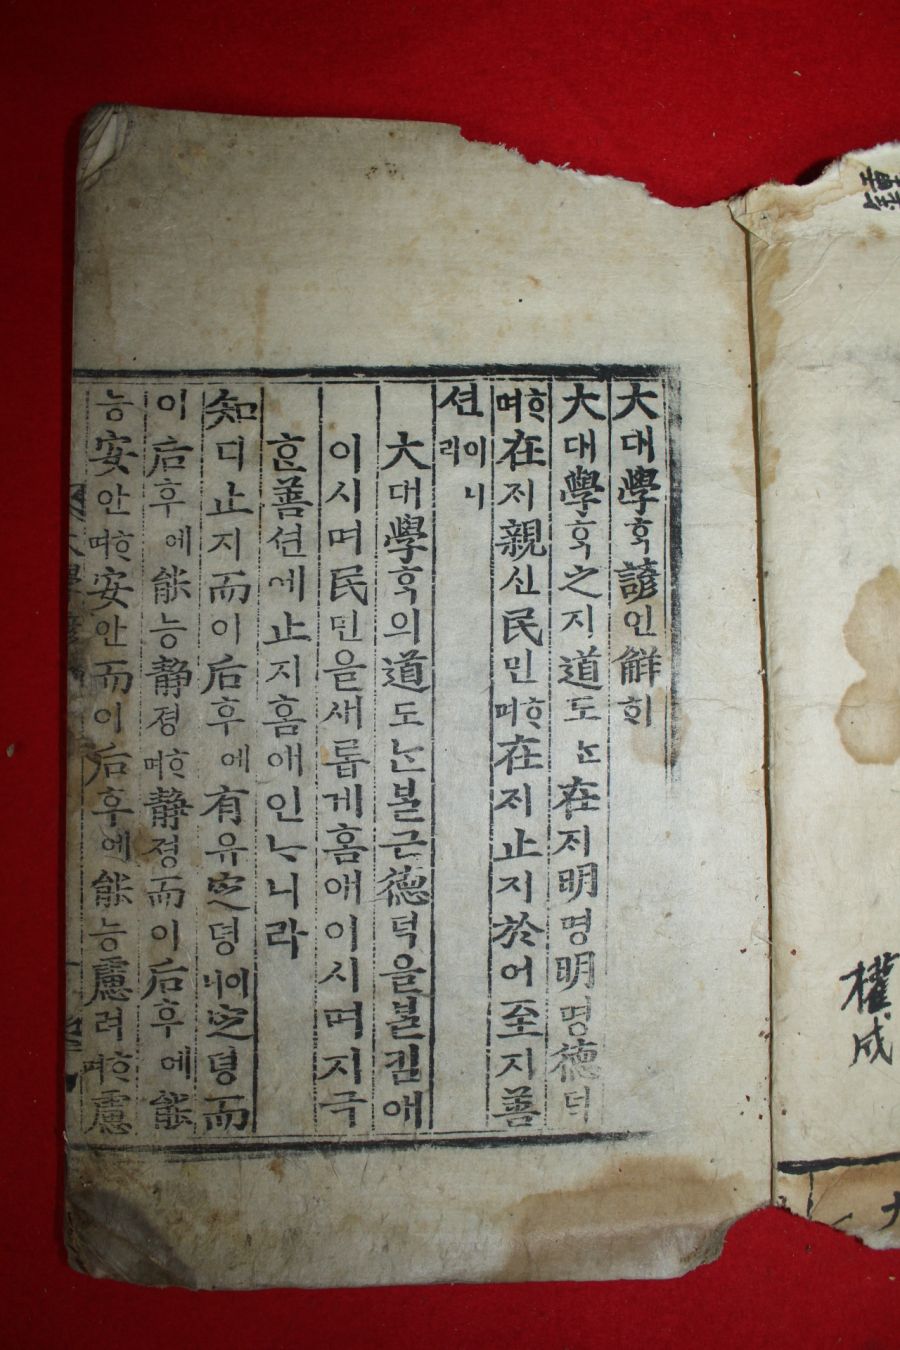 大대學ᄒᆞᆨ諺언解ᄒᆡ
大대學ᄒᆞᆨ之지道도ᄂᆞᆫ在ᄌᆡ明명明명德덕
ᄒᆞ며在ᄌᆡ親신民민ᄒᆞ며在ᄌᆡ止지於어至지善
션이니리
大대學ᄒᆞᆨ의道도ᄂᆞᆫᄇᆞᆯ근德덕을ᄇᆞᆯ킴애
이시며民민을새롭게홈애이시며지극
ᄒᆞᆫ善션에止지홈애인ᄂᆞ니라
知디止지而이后후에有유定뎡이니定뎡而
이后후에能능靜졍ᄒᆞ며靜졍而이后후에能
능安안ᄒᆞ며安안而이后후에能능慮려ᄒᆞ며慮
權